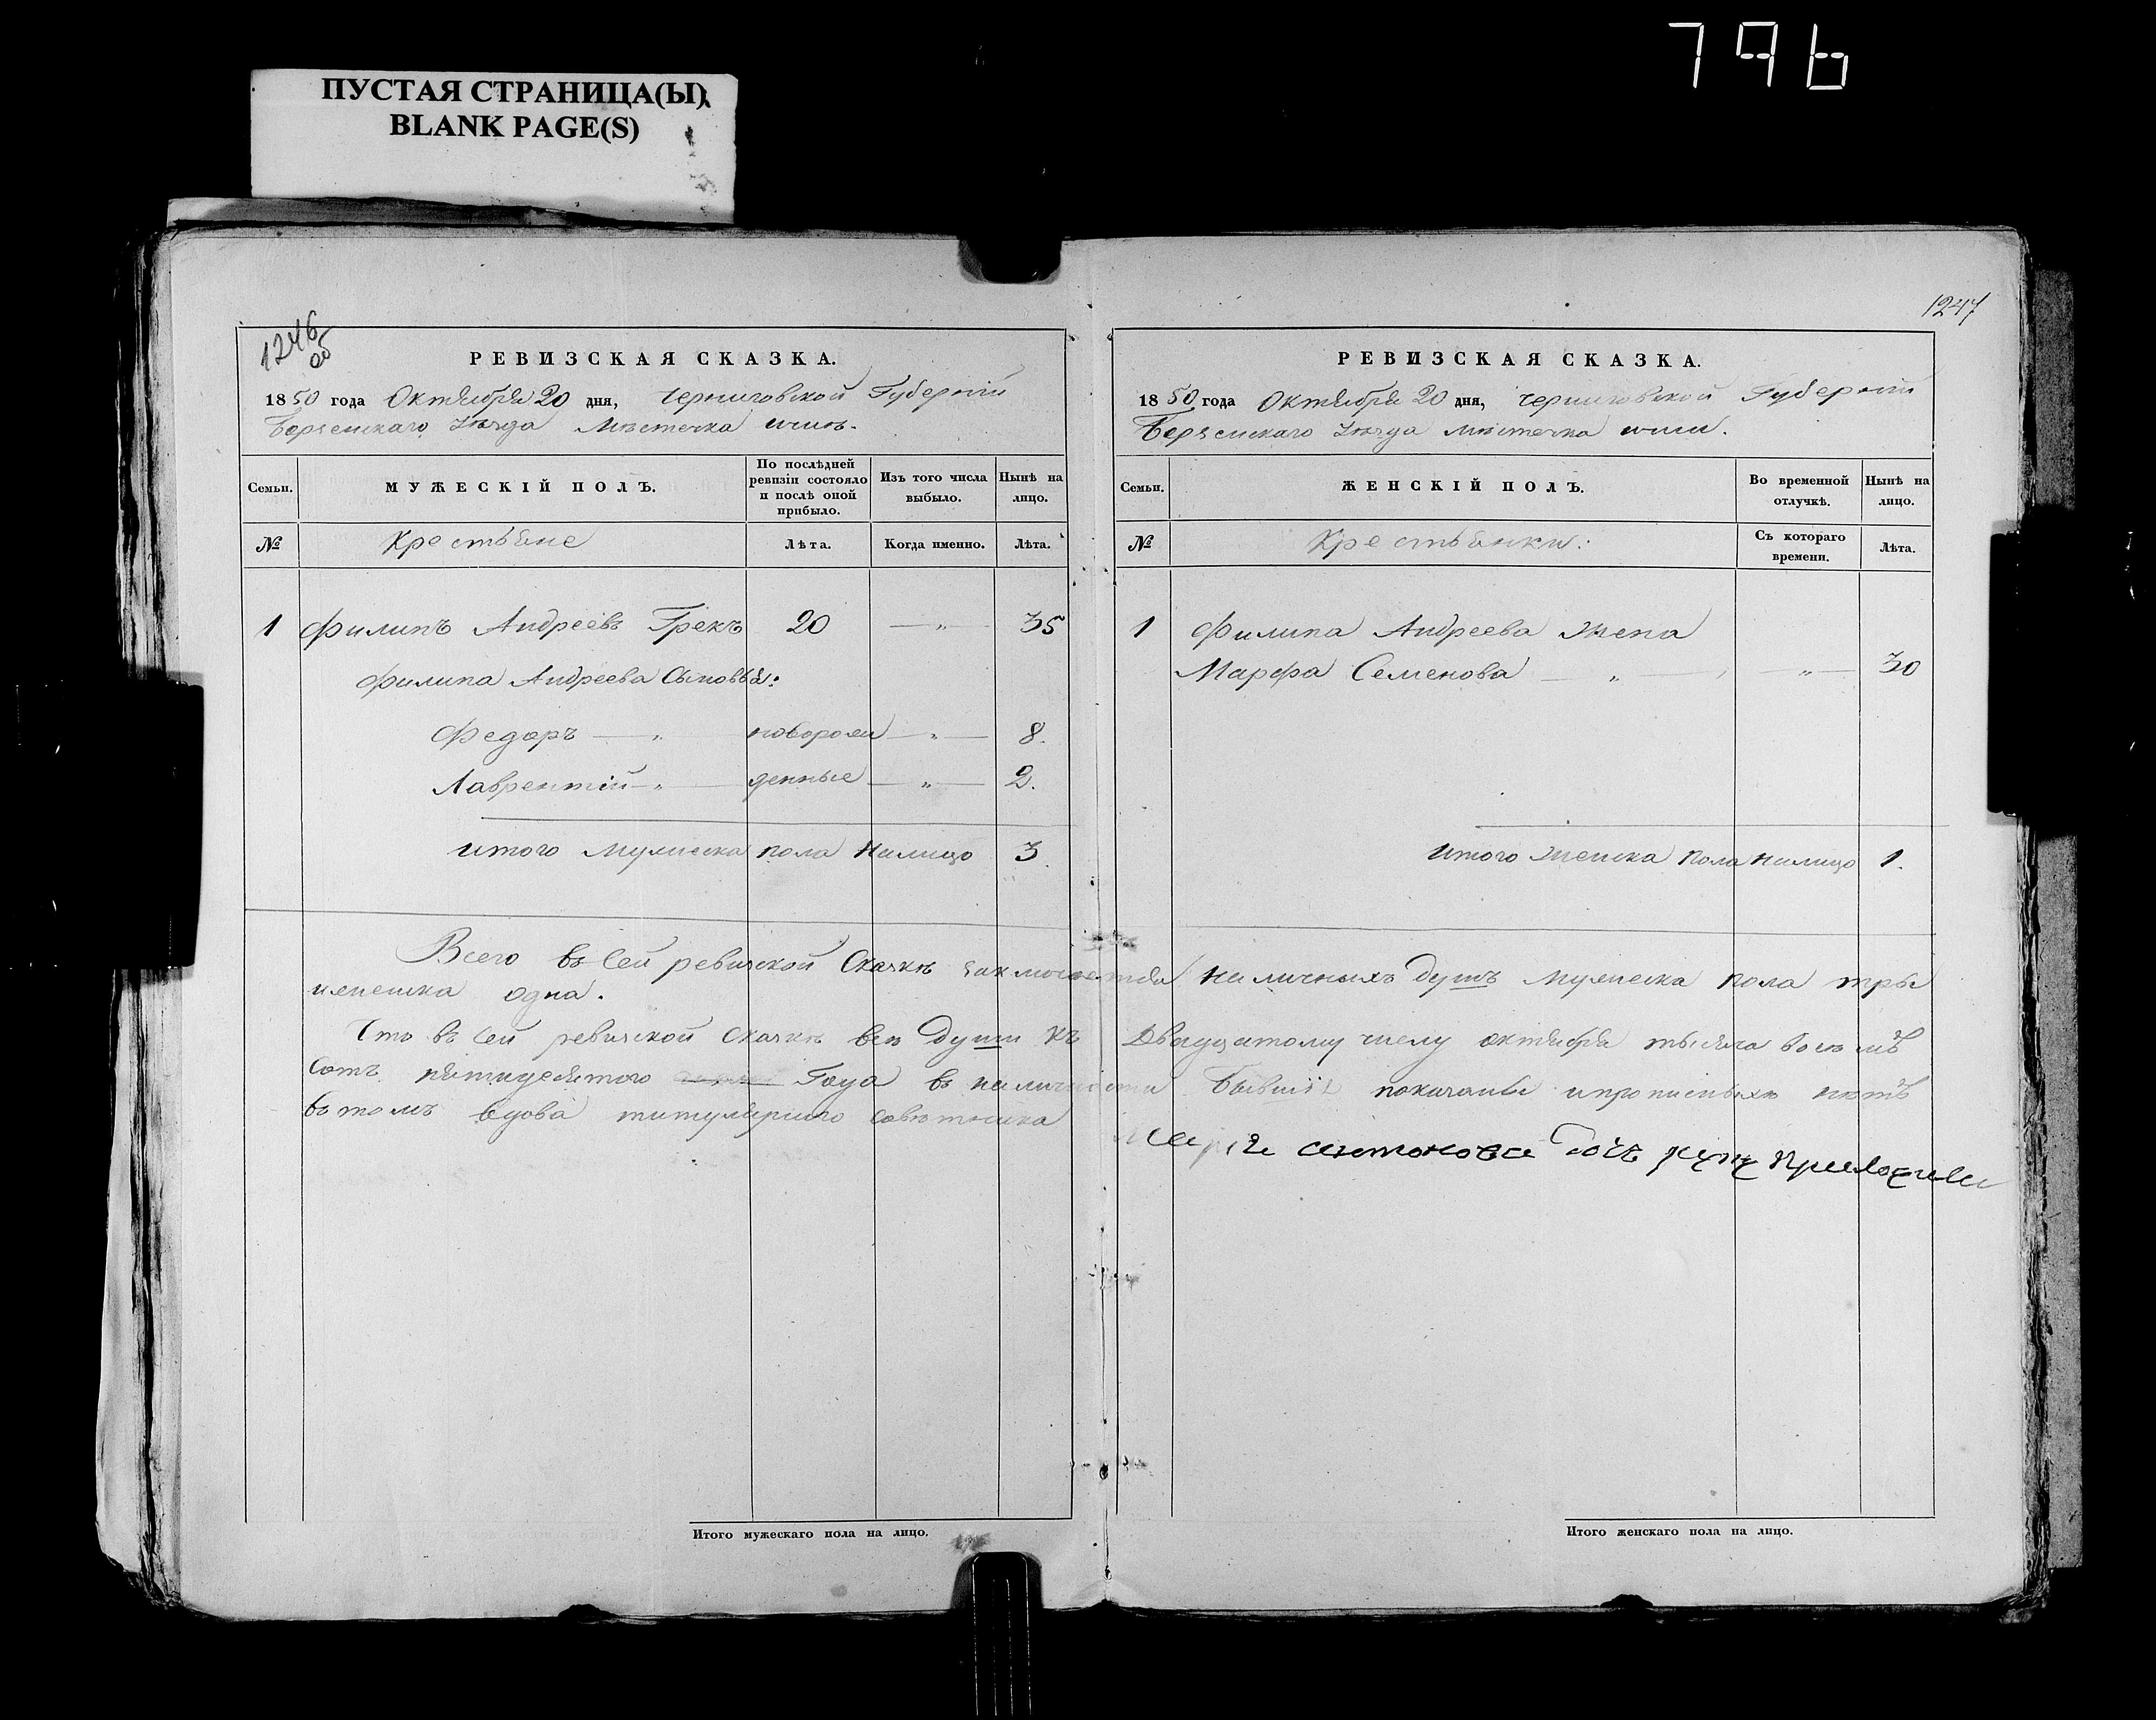 796
ПУСТАЯ СТРАНИЦА(Ы)
BLANK PAGE(S)
1246
об
РЕВИЗСКАЯ СКАЗКА.
1850 года Октября 20 дня, Черниговской Губерніи
Борзенскаго Уѣзда Мѣстечка Ични.
Семьи.
МУЖЕСКІЙ ПОЛЪ.
По послѣдней ревизіи состояло и послѣ оной прибыло.
Изъ того числа выбыло.
Нынѣ на лицо.
№
Крестьяне
Лѣта.
Когда именно.
Лѣта.
1 Филипъ Андреевъ Грекъ 20 — „ — 35
Филипа Андреева Сыновья:
Федоръ — „ — новорож — „ — 8.
Лаврентій — „ — денные — „ — 2.
Итого Мужеска пола налицо 3.
1247
РЕВИЗСКАЯ СКАЗКА.
1850 года Октября 20 дня, Черниговской Губерніи
Борзенскаго Уѣзда мѣстечка Ични.
Семьи.
ЖЕНСКІЙ ПОЛЪ.
Во временной отлучкѣ.
Нынѣ на лицо.
№
Крестьянки:
Съ котораго времени.
Лѣта.
1 Филипа Андреева Жена
Марфа Семенова — „ — — „ — 30
Итого Женска пола налицо 1.
Всего въ Сей ревизской Сказкѣ заключается наличныхъ душъ Мужеска пола три
и женска одна.
Что въ Сей ревизской Сказкѣ всѣ души къ Двадцатому числу октября тысяча восемъ
Сотъ пятидесятого Года въ наличности бывшія показаны и прописныхъ нѣтъ
въ томъ вдова титулярного совѣтника
антонова руку приложила
Итого мужескаго пола на лицо.
Итого женскаго пола на лицо.